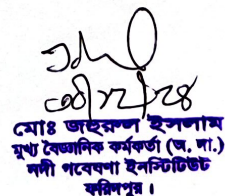 ০৩/১২/২৪
মোঃ জহুরুল ইসলাম
মুখ্য বৈজ্ঞানিক কর্মকর্তা (অ. দা.)
নদী গবেষণা ইনস্টিটিউট
ফরিদপুর।